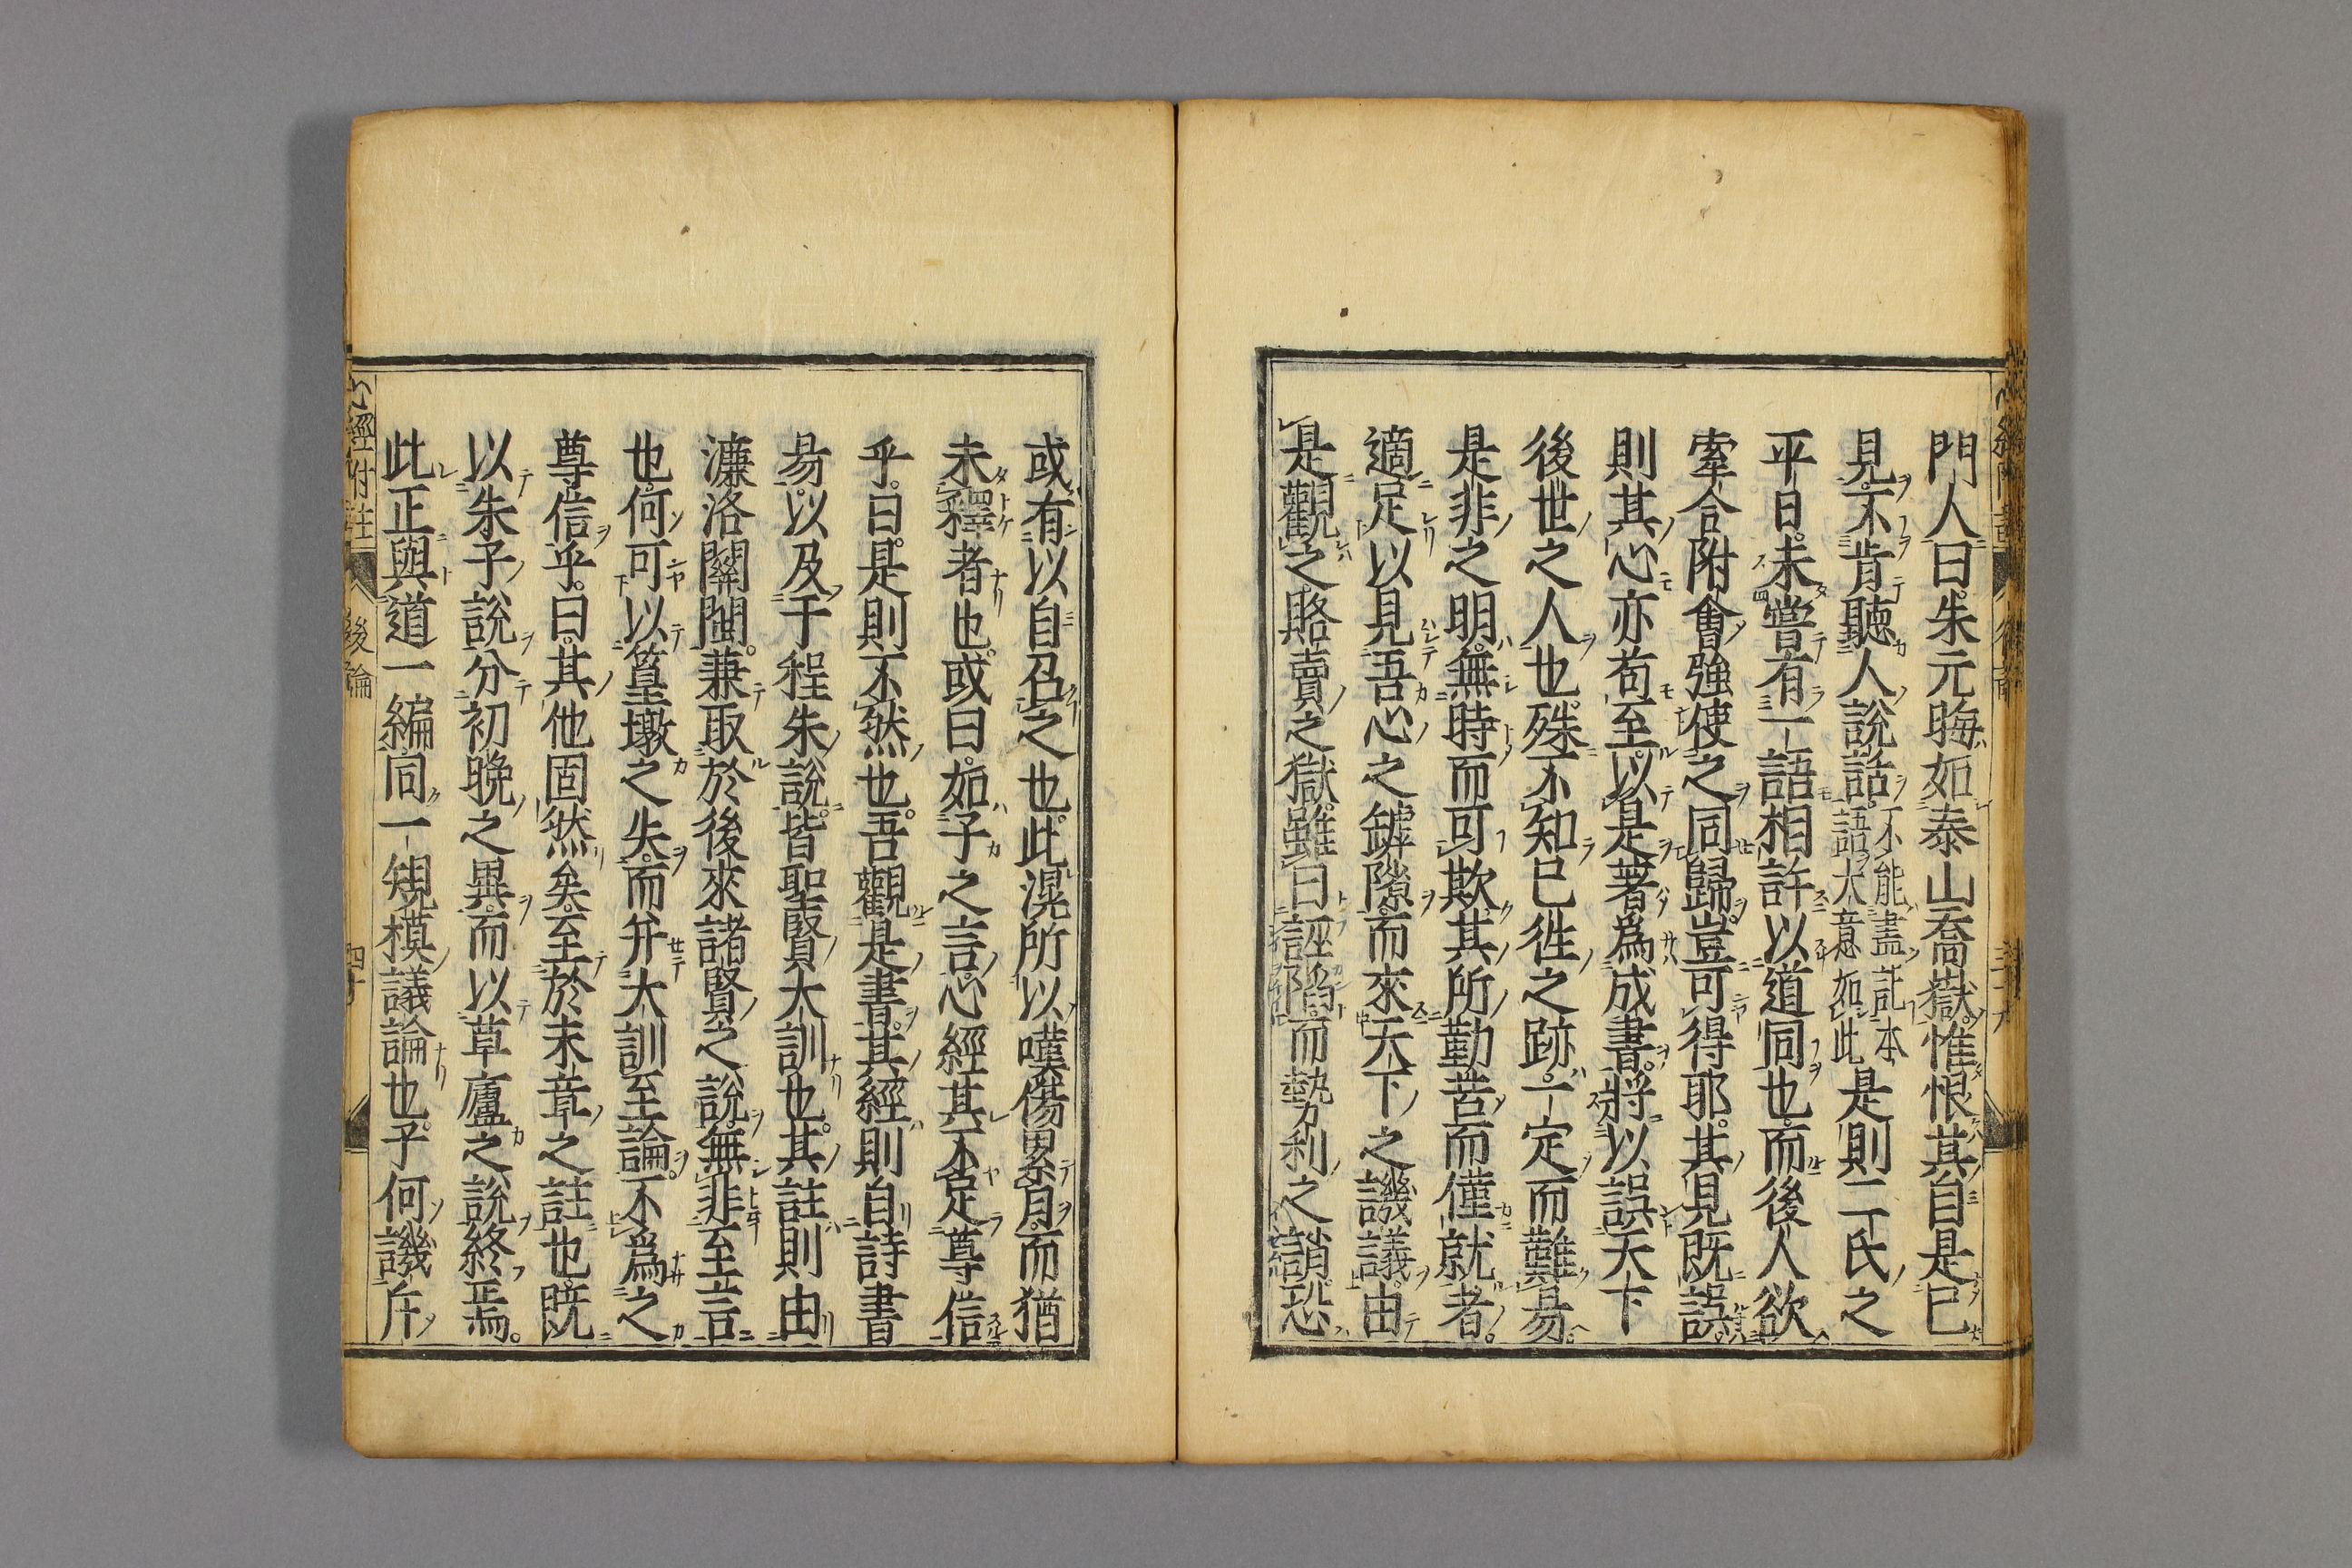 門人曰朱元晦如泰山喬嶽惟恨其自是已
見不肯聽人說話不能盡記本語大意如此是則二氏之
平日未嘗有一語相許以道同也而後人欲
牽合附會強使之同歸豈可得耶其見既誤
則其心亦苟至以是著爲成書將以誤天下
後世之人也殊不知已徃之跡一定而難易
是非之明無時而可欺其所勤苦而僅就者
適足以見吾心之罅隙而來天下之譏議由
是觀之賂賣之獄雖曰誣陷而勢利之誚恐
或有以自召之也此滉所以嘆傷累月而猶
未釋者也或曰如子之言心經其不足尊信
乎曰是則不然也吾觀是書其經則自詩書
易以及于程朱說皆聖賢大訓也其註則由
濂洛關閩兼取於後來諸賢之說無非至言
也何可以篁墩之失而弁大訓至論不爲之
尊信乎曰其他固然矣至於末章之註也既
以朱子說分初晩之異而以草廬之說終焉
此正與道一編同一規模議論也子何譏斥
心經附註 後論 四十